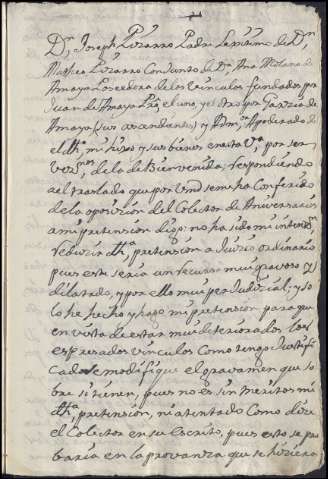 Dn. Joseph Pizarro Padre Lexitimo de Dn.
Matheo Pizarro Conjunto de Da. Ana Molano de
Amaya Poseedora de los Vinculos fundados por
Juan de Amaya Pro. el uno, y el otro por Garzia de
Amayo (sus ascendientes) y Admor. Apoderado de
el dho. mi hixo y sus bienes en esta Va. por ser
vezinos de la de Bienvenida; respondiendo
ael traslado que por Vm se me ha Conferido
de la oposizion del Colector de Aniversarios
a mi pretension digo: no ha sido mi intenzn.
reducir dha. pretension a Juizio ordinario
pues este seria un recurso mui gravoso y
dilatado, y por ello mui perJudizial; y so
lo he hecho y hago mi pretension para que
en vista de estar mui deteriorados los
expresados vinculos Como tengo Justifi
cado se modifique el gravamen que so
bre si tienen, pues no es sin meritos mi
dha. pretension, ni atentado Como dize
el Colector en su Escrito, pues esto se pro
baria en la provanza que se hiziera